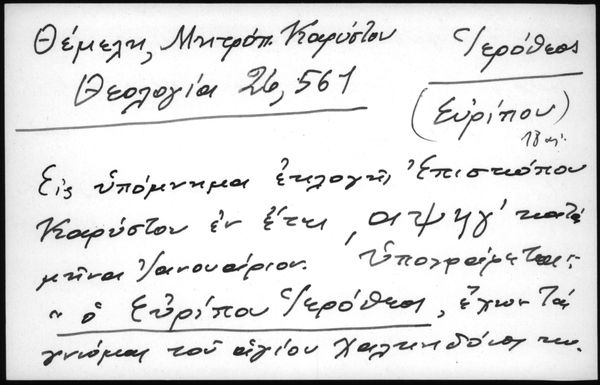 Θέμελη, Μητρόπ. Καρύστου
Ἱερόθεος
Θεολογία 26, 561
(Εὐρίπου)
18 αἰ.
Εἰς ὑπόμνημα ἐκλογῆς Ἐπισκόπου
Καρύστου ἐν ἔτει ͵αψηγ΄ κατὰ
μῆνα Ἰανουάριον. Ὑπογράφεται:
"ὁ Εὐρίπου Ἱερόθεος, ἔχων τὰς
γνώμας τοῦ ἁγίου Χαλκηδόνος